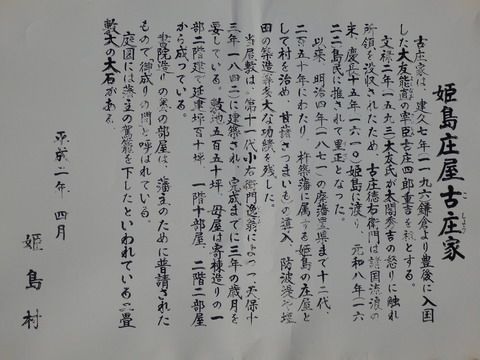 姫島庄屋 古庄家
こしょう
古庄家は、建久七年(一一九六)鎌倉より豊後に入国
した大友能直の宰臣古庄四郎重吉を祖とする。
文禄二年(一五九三)大友氏が太閤秀吉の怒りに触れ
所領を没収されたため、古庄德右衛門は諸国流浪の
末、慶長十五年(一六一〇)姫島に渡り、元和八年(一六
二二)島民に推されて里正となった。
以来、明治四年(一八七一)の廃藩置県まで十二代、
二百五十年にわたり、杵築藩に属する姫島の庄屋と
して村を治め、甘藷(さつまいも)の導入、防波堤や塩
田の築造等多大な功績を残した。
当屋敷は、第十一代小右衛門逸翁によって、天保十
三年(一八四二)に建築され、完成までに三年の歳月を
要している。敷地五百五十坪、母屋は寄棟造りの一
部二階建て延坪百十坪、一階十部屋、二階二部屋
から成っている。
書院造りの奥の部屋は、藩主のために普請された
もので「御成りの間」と呼ばれている。
庭園には藩主の駕籠を下したといわれている二畳
敷大の大石がある。
平成二年 四月
姫島村